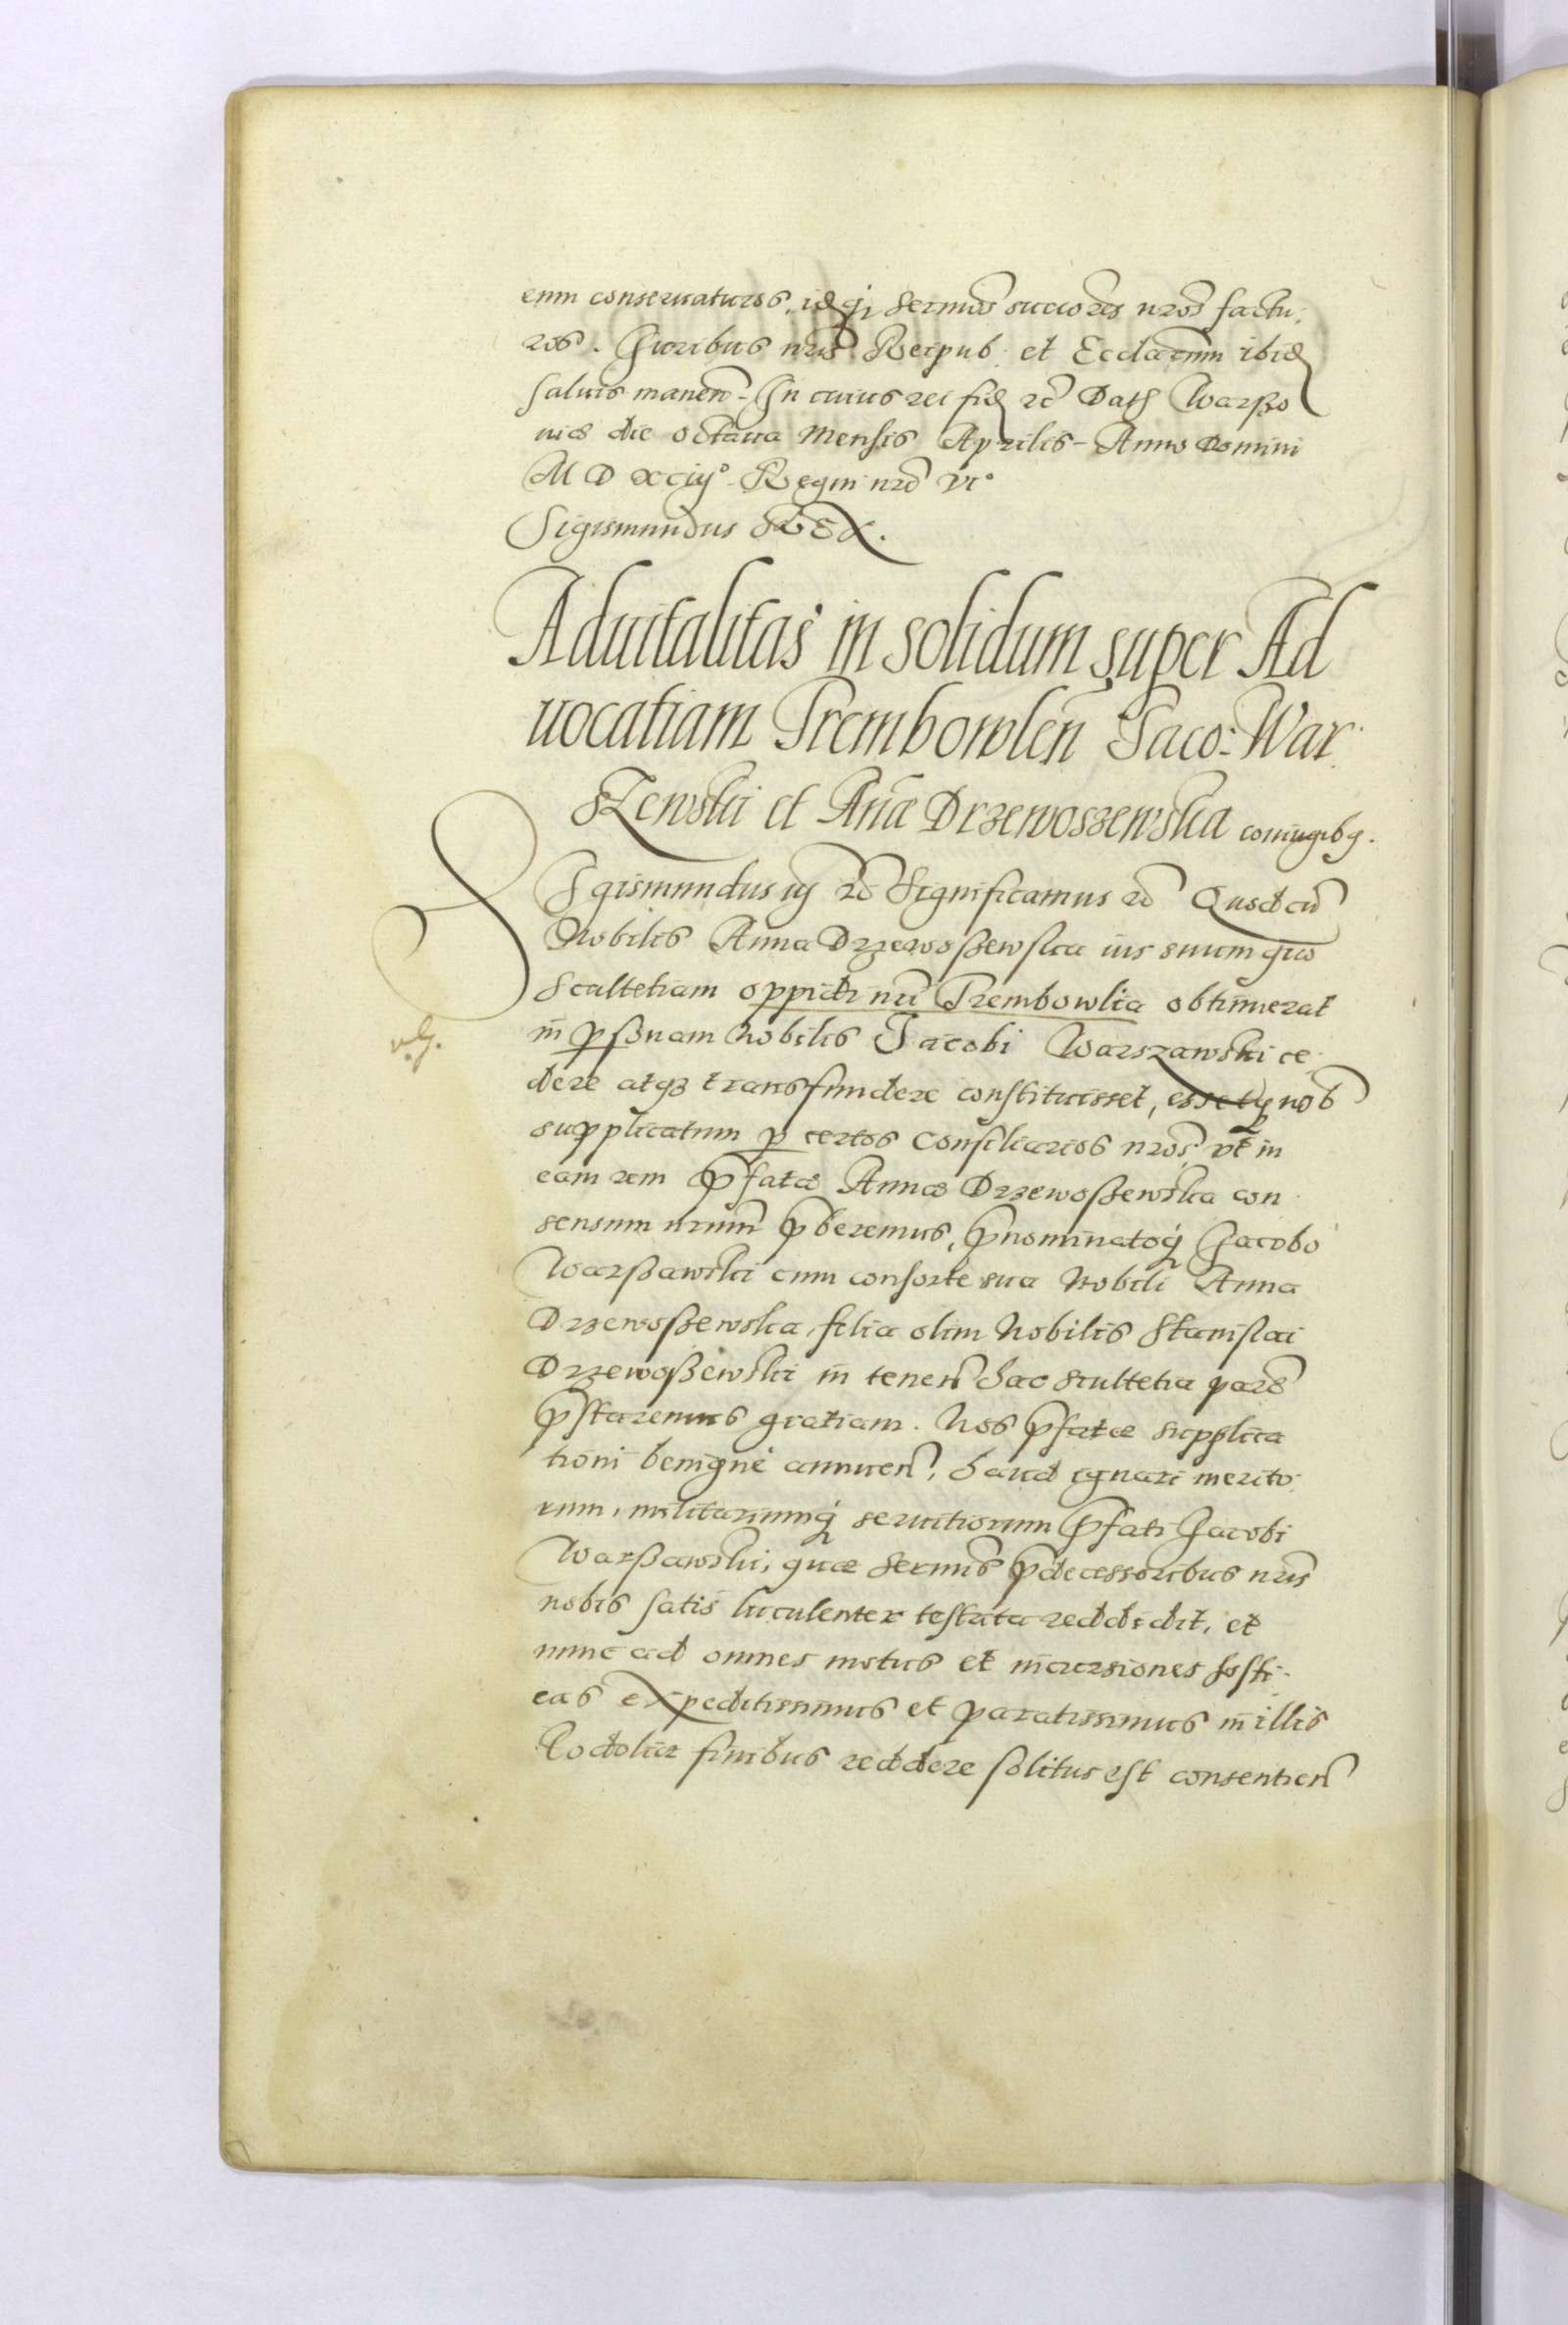 eum conseruaturos, idq́ Sermos succores nros factu:
ros. Iuribus nris Reipub: et Ecclarum ibid
saluis manen̄. In cuius rei fid rc̄ Dat Warßo
uiæ die octaua Mensis Aprilis Anno Domini
M D XCiij° Regni nrō vi°
Sigismundus REX.
Aduitalitas in solidum super Ad
uocatiam Trembowlen̄ Iaco: War
szewski et Añæ Drzewoszewska coniugibq.
Sigismundus iij rc̄ Significamus rc̄ Quod cū
Nobilis Anna Drzewoßewska ius suum quo
Scultetiam oppidi nri Trembowlia obtinuerat
in psonam Nobilis Iacobi Warszawski ce:
dere atqȝ transfundere constituisset, essetq nob
supplicatum p certos Consiliarios nros, vt in
eam rem pfatæ Annæ Drzewoßewska con
sensum nrum pberemus, pnominatoq́ Iacobo
Warßawski cum consorte sua Nobili Anna
Drzewoßewska, filia olim Nobilis Stanislai
Drzewoßewski in tenen̄ hac Scultetia parē
pstaremus gratiam. Nos pfatæ supplica
tioni benignè annuen̄, haud ignari merito:
rum, militariumq́ seruitiorum pfati Iacobi
Warßawski, quæ Sermis pdecessoribus nris
nobis satis luculenter testata reddidit, et
nunc ad omnes motus et incursiones hosti:
cas expeditissimus et paratissimus in illis
Podoliæ finibus reddere solitus est consentien̄